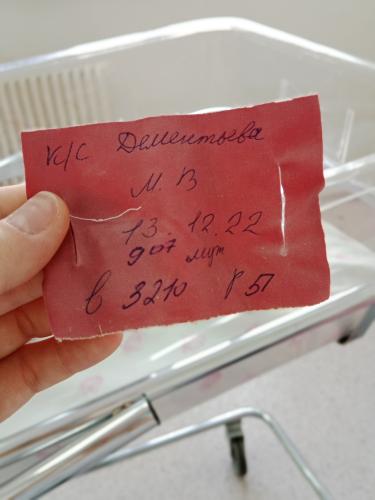 К/С Дементьева
М. В
13. 12. 22
9 07 мут
в 3210 Р 51